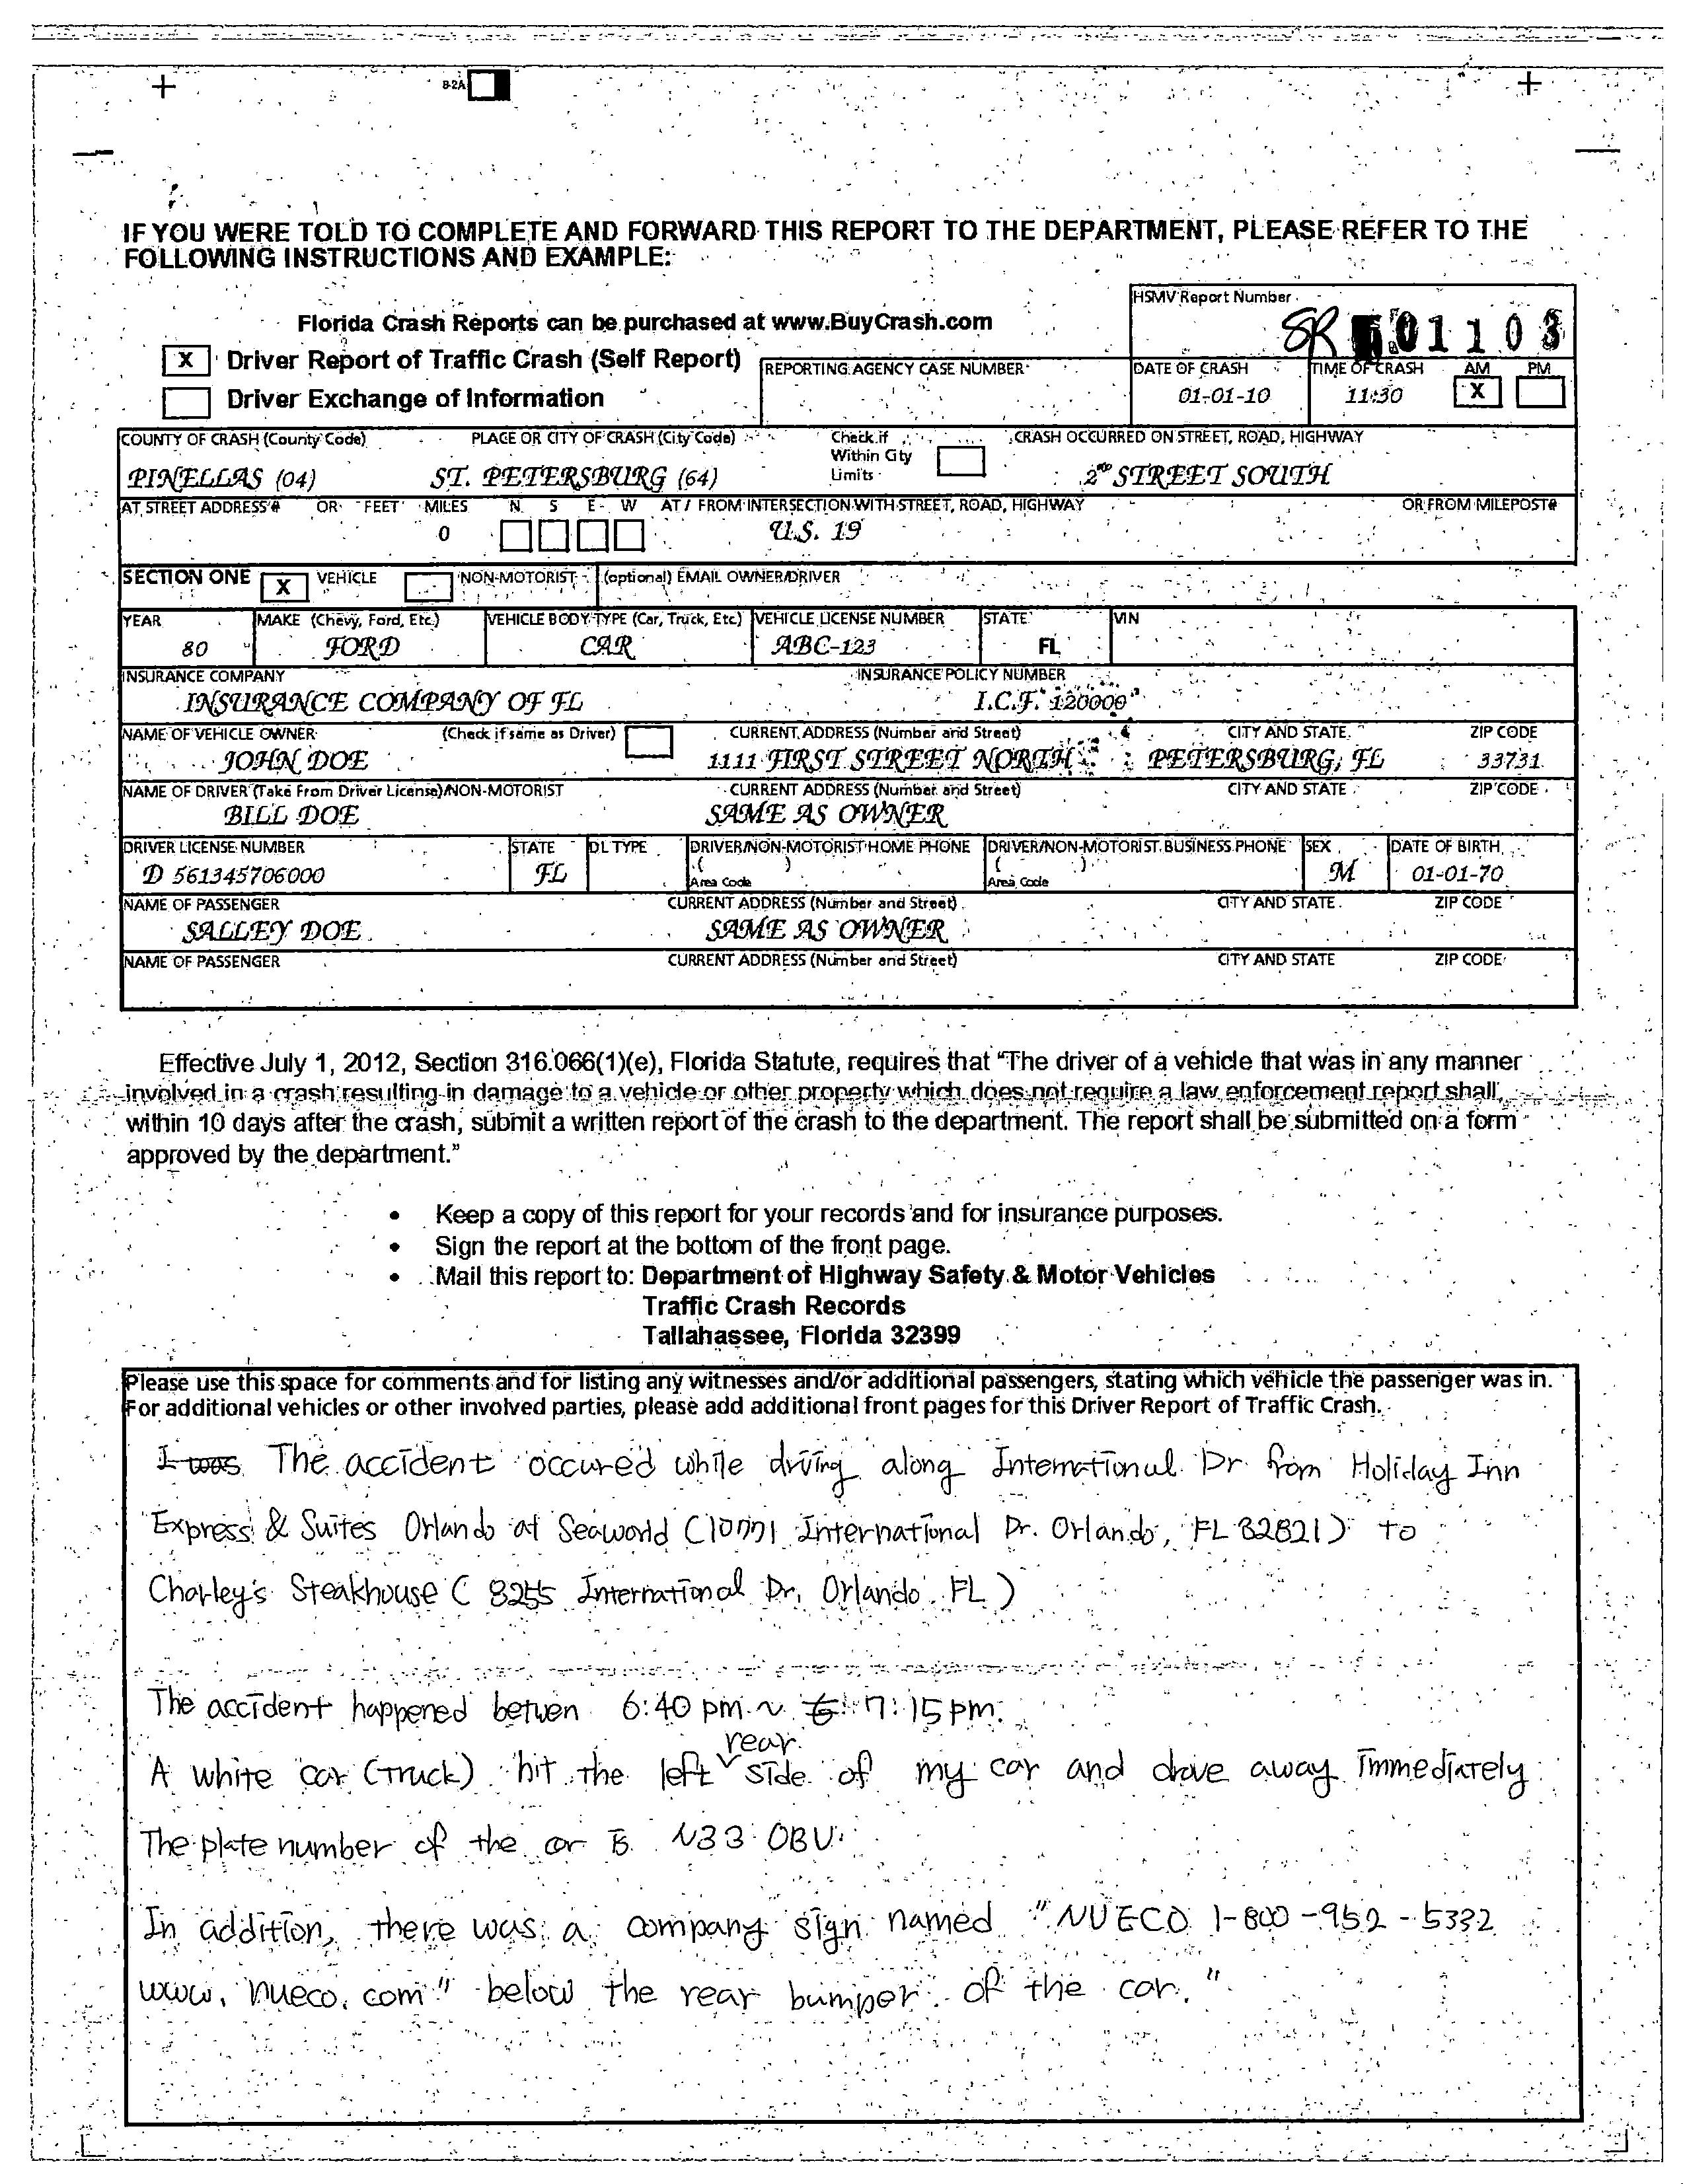 8-2A
IF YOU WERE TOLD TO COMPLETE AND FORWARD THIS REPORT TO THE DEPARTMENT, PLEASE REFER TO THE
FOLLOWING INSTRUCTIONS AND EXAMPLE:
HSMV Report Number
Florida Crash Reports can be purchased at www.BuyCrash.com
SR 01103
X Driver Report of Traffic Crash (Self Report)
REPORTING AGENCY CASE NUMBER DATE OF CRASH TIME OF CRASH AM PM
01-01-10 11:30 X
Driver Exchange of Information
COUNTY OF CRASH (County Code) PLACE OR CITY OF CRASH (City Code) Check if Within City Limits CRASH OCCURRED ON STREET, ROAD, HIGHWAY
PINELLAS (04) ST. PETERSBURG (64) 2ND STREET SOUTH
AT STREET ADDRESS # OR FEET MILES N S E W AT / FROM INTERSECTION WITH STREET, ROAD, HIGHWAY OR FROM MILEPOST#
0 U.S. 19
SECTION ONE X VEHICLE NON-MOTORIST (optional) EMAIL OWNER/DRIVER
YEAR MAKE (Chevy, Ford, Etc.) VEHICLE BODY TYPE (Car, Truck, Etc.) VEHICLE LICENSE NUMBER STATE VIN
80 FORD CAR ABC-123 FL
INSURANCE COMPANY INSURANCE POLICY NUMBER
INSURANCE COMPANY OF FL I.C.F. 120000
NAME OF VEHICLE OWNER (Check if same as Driver) CURRENT ADDRESS (Number and Street) CITY AND STATE ZIP CODE
JOHN DOE 1111 FIRST STREET NORTH PETERSBURG, FL 33731
NAME OF DRIVER (Take From Driver License)/NON-MOTORIST CURRENT ADDRESS (Number and Street) CITY AND STATE ZIP CODE
BILL DOE SAME AS OWNER
DRIVER LICENSE NUMBER STATE DL TYPE DRIVER/NON-MOTORIST HOME PHONE DRIVER/NON-MOTORIST BUSINESS PHONE SEX DATE OF BIRTH
D 561345706000 FL ( ) Area Code ( ) Area Code M 01-01-70
NAME OF PASSENGER CURRENT ADDRESS (Number and Street) CITY AND STATE ZIP CODE
SALLEY DOE SAME AS OWNER
NAME OF PASSENGER CURRENT ADDRESS (Number and Street) CITY AND STATE ZIP CODE
Effective July 1, 2012, Section 316.066(1)(e), Florida Statute, requires that "The driver of a vehicle that was in any manner
involved in a crash resulting in damage to a vehicle or other property which does not require a law enforcement report shall,
within 10 days after the crash, submit a written report of the crash to the department. The report shall be submitted on a form
approved by the department."
• Keep a copy of this report for your records and for insurance purposes.
• Sign the report at the bottom of the front page.
• Mail this report to: Department of Highway Safety & Motor Vehicles
Traffic Crash Records
Tallahassee, Florida 32399
Please use this space for comments and for listing any witnesses and/or additional passengers, stating which vehicle the passenger was in.
For additional vehicles or other involved parties, please add additional front pages for this Driver Report of Traffic Crash.
I was The accident occured while driving along International Dr from Holiday Inn
Express & Suites Orlando at Seaworld (10771 International Dr. Orlando, FL 32821) to
Charley's Steakhouse ( 8255 International Dr, Orlando FL )
The accident happened betwen 6:40 pm ~ 6: 7:15 pm.
A white car (truck) hit the left rear side of my car and drove away immediately
The plate number of the car is N33 0BU.
In addition, there was a company sign named "NUECO 1-800-952-5332
www.nueco.com" below the rear bumper of the car."